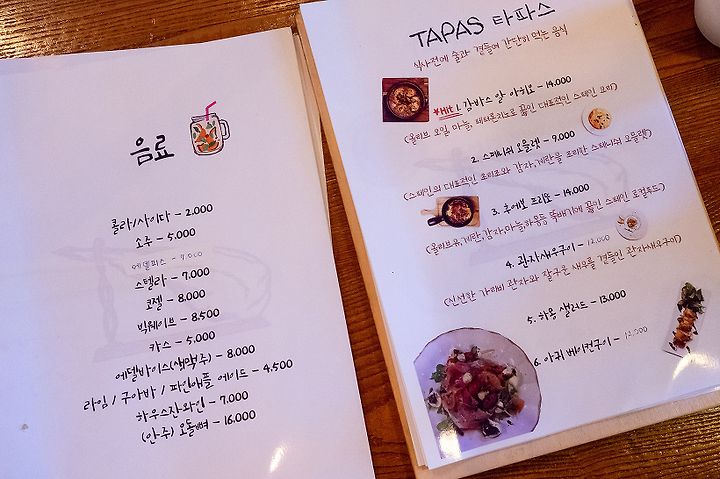 음료
콜라/사이다 - 2.000
소주 - 5.000
에델피스 - 7.000
스텔라 - 7.000
코젤 - 8.000
빅웨이브 - 8.500
카스 - 5.000
에델바이스(생맥주) - 8.000
라임 / 구아바 / 파인애플 에이드 - 4.500
하우스잔와인 - 7.000
(안주) 오돌뼈 - 16.000
TAPAS 타파스
식사전에 술과 곁들여 간단히 먹는 음식
*Hit! 1. 감바스 알 아히요 - 14.000
(올리브 오일, 마늘, 페퍼론치노로 끓인 대표적인 스페인 요리)
2. 스페니쉬 오믈렛 - 9.000
(스페인의 대표적인 초리조와 감자,계란을 조리한 스페니쉬 오믈렛)
3. 후에보 프리또 - 14.000
(올리브유,계란,감자,마늘,하몽등 뚝배기에 끓인 스페인 로컬푸드)
4. 관자새우구이 - 12.000
(신선한 가리비 관자와 잘구운 새우를 곁들인 관자새우구이)
5. 하몽 샐러드 - 13.000
6. 아귀 베이컨구이 - 12.000